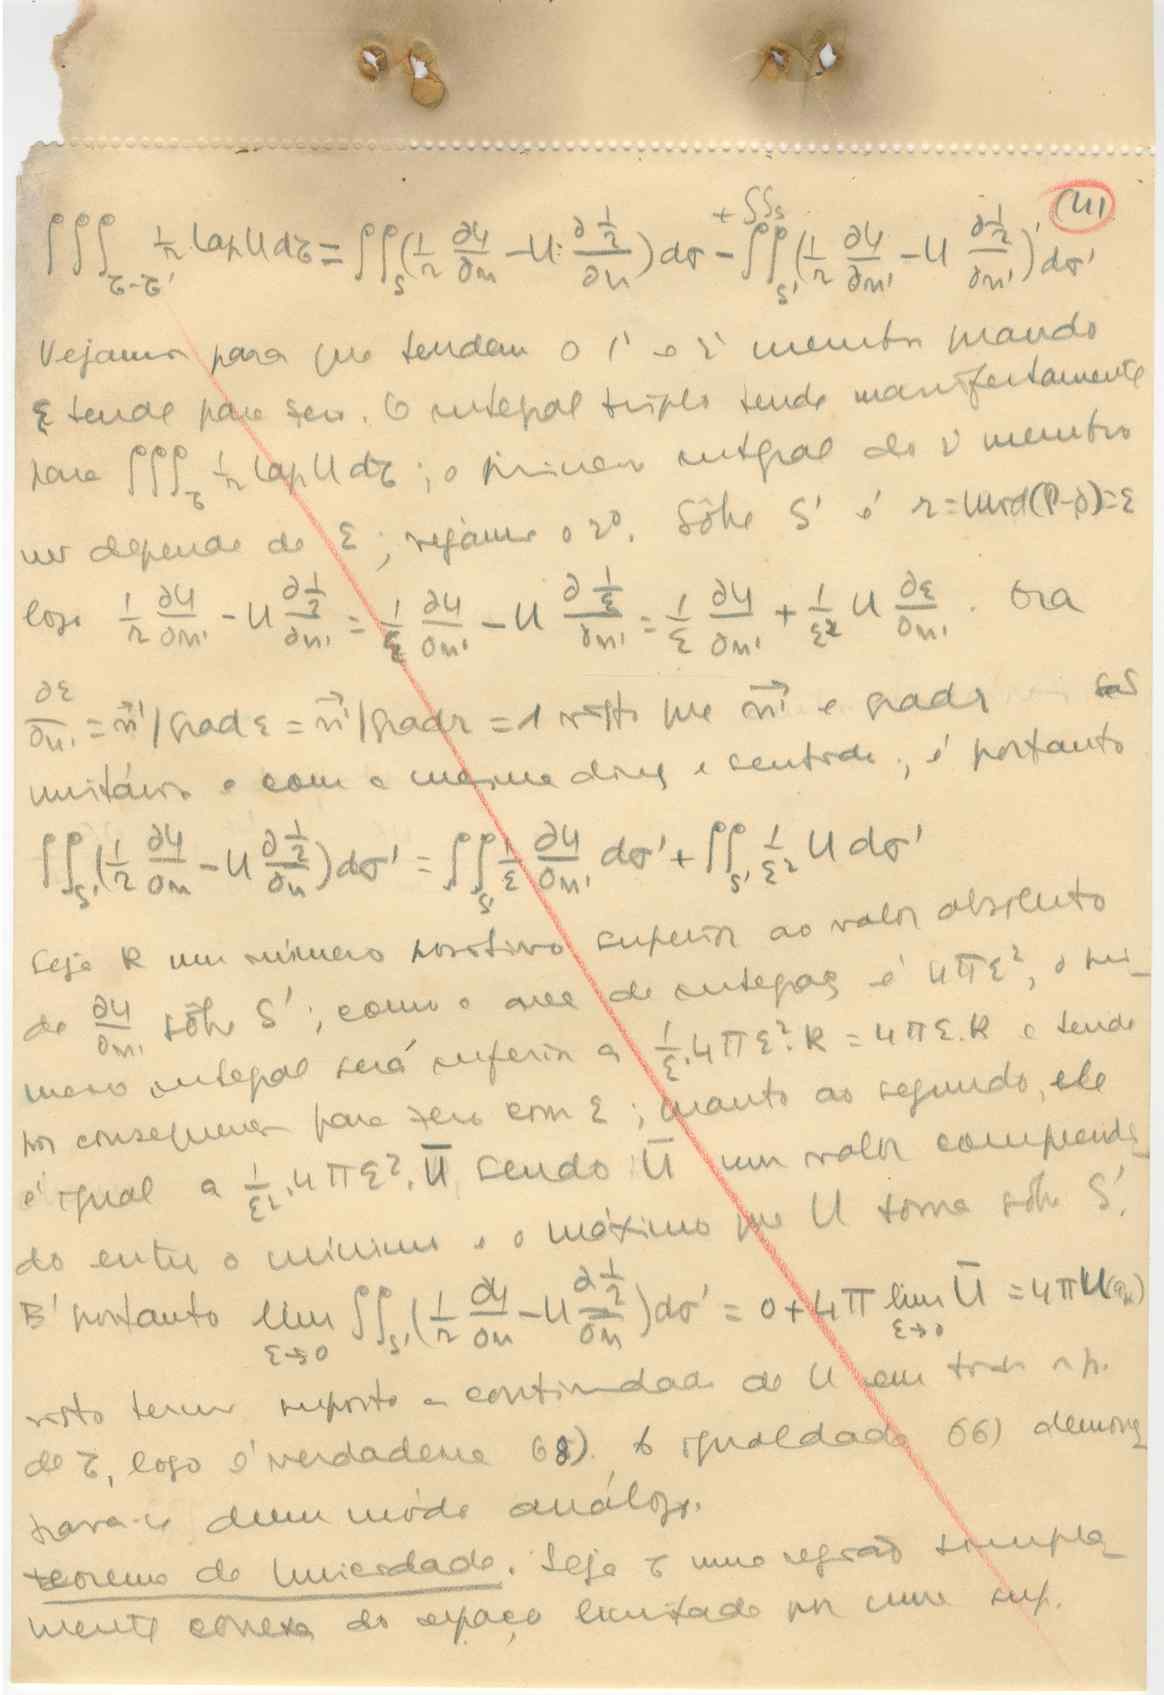 (41)
+ ∫∫_S
∫∫∫_{τ-τ'} 1/r lap U dτ = ∫∫_S (1/r ∂U/∂n - U ∂(1/r)/∂n) dσ - ∫∫_{S'} (1/r ∂U/∂n' - U ∂(1/r)/∂n') dσ'
Vejamos para que tendem o 1º e 2º membro quando
ε tende para zero. O integral triplo tende manifestamente
para ∫∫∫_τ 1/r lap U dτ ; o primeiro integral do 2º membro
não depende de ε ; vejamos o 2º. Sôbre S' é r = mod(P-P) = ε
logo 1/r ∂U/∂n' - U ∂(1/r)/∂n' = 1/ε ∂U/∂n' - U ∂(1/ε)/∂n' = 1/ε ∂U/∂n' + 1/ε² U ∂ε/∂n' . Ora
∂ε/∂n' = n⃗'/grad ε = n⃗'/grad r = 1 visto que n⃗' e grad r são
unitários e com a mesma direç e sentido ; é portanto
∫∫_{S'} (1/r ∂U/∂n - U ∂(1/r)/∂n) dσ' = ∫∫_{S'} 1/ε ∂U/∂n' dσ' + ∫∫_{S'} 1/ε² U dσ'
Seja K um número positivo superior ao valor absoluto
de ∂U/∂n' sôbre S' ; como a area de integraç é 4πε², o pri-
meiro integral será inferior a 1/ε . 4πε² . K = 4πε.K e tende
por consequencia para zero com ε ; quanto ao segundo, ele
é igual a 1/ε² . 4πε² . Ū, sendo Ū um valor compreendi
do entre o mínimo e o máximo que U toma sôbre S'.
E' portanto lim_{ε→0} ∫∫_{S'} (1/r ∂U/∂n - U ∂(1/r)/∂n) dσ' = 0 + 4π lim_{ε→0} Ū = 4π U
visto termos suposto a continuidade de U em todo o p.
de τ, logo é verdadeira 68). A igualdade 66) demons
trava-se dum módo análogo.
Teorema de Unicidade. Seja τ uma região simples
mente conexa do espaço limitado por uma sup.